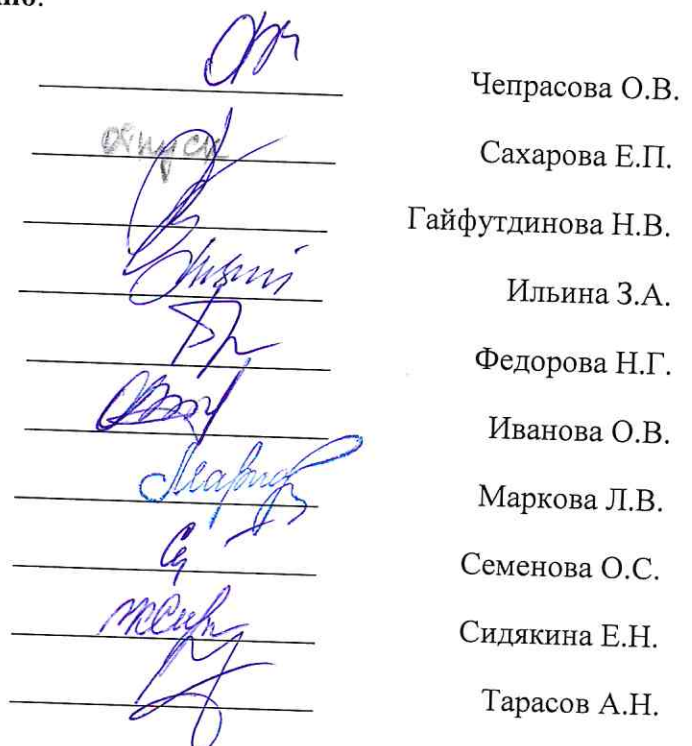 но:
Чепрасова О.В.
отпуск Сахарова Е.П.
Гайфутдинова Н.В.
Ильина З.А.
Федорова Н.Г.
Иванова О.В.
Маркова Л.В.
Семенова О.С.
Сидякина Е.Н.
Тарасов А.Н.